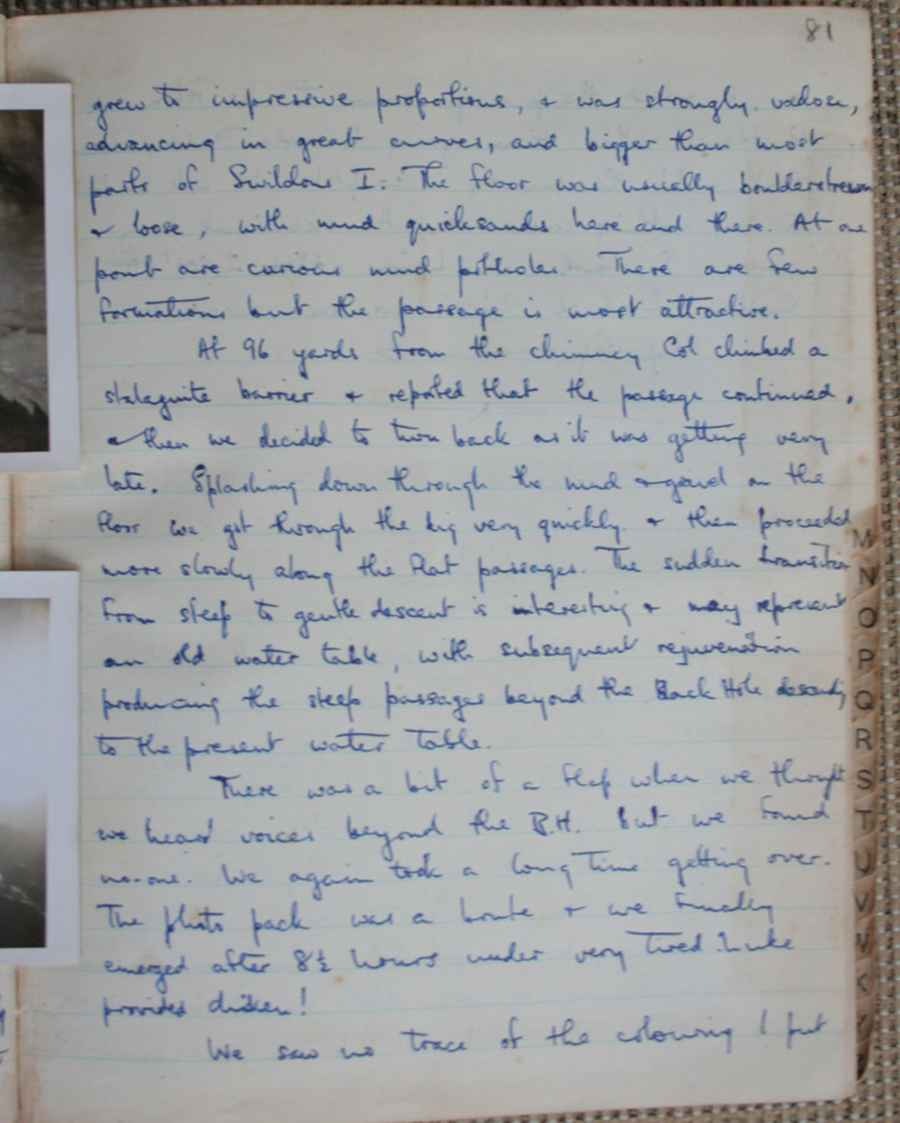 81
grew to impressive proportions, & was strongly vadose,
advancing in great curves, and bigger than most
parts of Swildons I. The floor was usually boulderstrewn
& loose, with mud quicksands here and there. At one
point are curious mud potholes. There are few
formations but the passage is most attractive.
At 96 yards from the chimney Col climbed a
stalagmite barrier & reported that the passage continued,
& then we decided to turn back as it was getting very
late. Splashing down through the mud & gravel on the
floor we got through the big very quickly & then proceeded
more slowly along the flat passages. The sudden transition
from steep to gentle descent is interesting & may represent
an old water table, with subsequent rejuvenation
producing the steep passages beyond the Back Hole descending
to the present water table.
There was a bit of a flap when we thought
we heard voices beyond the B.H. but we found
no-one. We again took a long time getting over.
The photo pack was a brute & we finally
emerged after 8½ hours under very tired. Luke
provides chicken!
We saw no trace of the colouring I put
M
N
O
P
Q
R
S
T
U
V
W